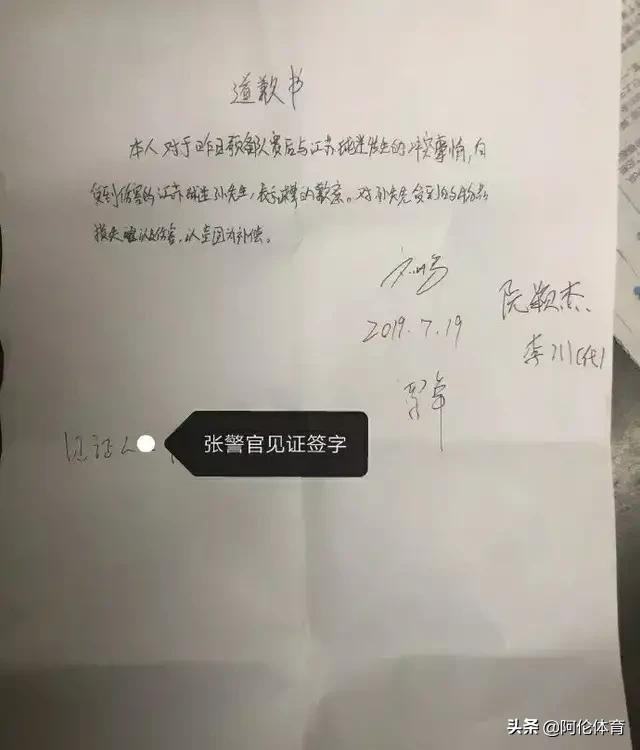 道歉书
本人对于昨日预备队赛后与江苏球迷发生的冲突事情,向
受到伤害的江苏球迷孙先生,表示诚挚的歉意。对孙先生受到的
损失以及伤害,以
2019.7.19
阮颖杰
李川(代)
见证人
张警官见证签字
头条 @阿伦体育